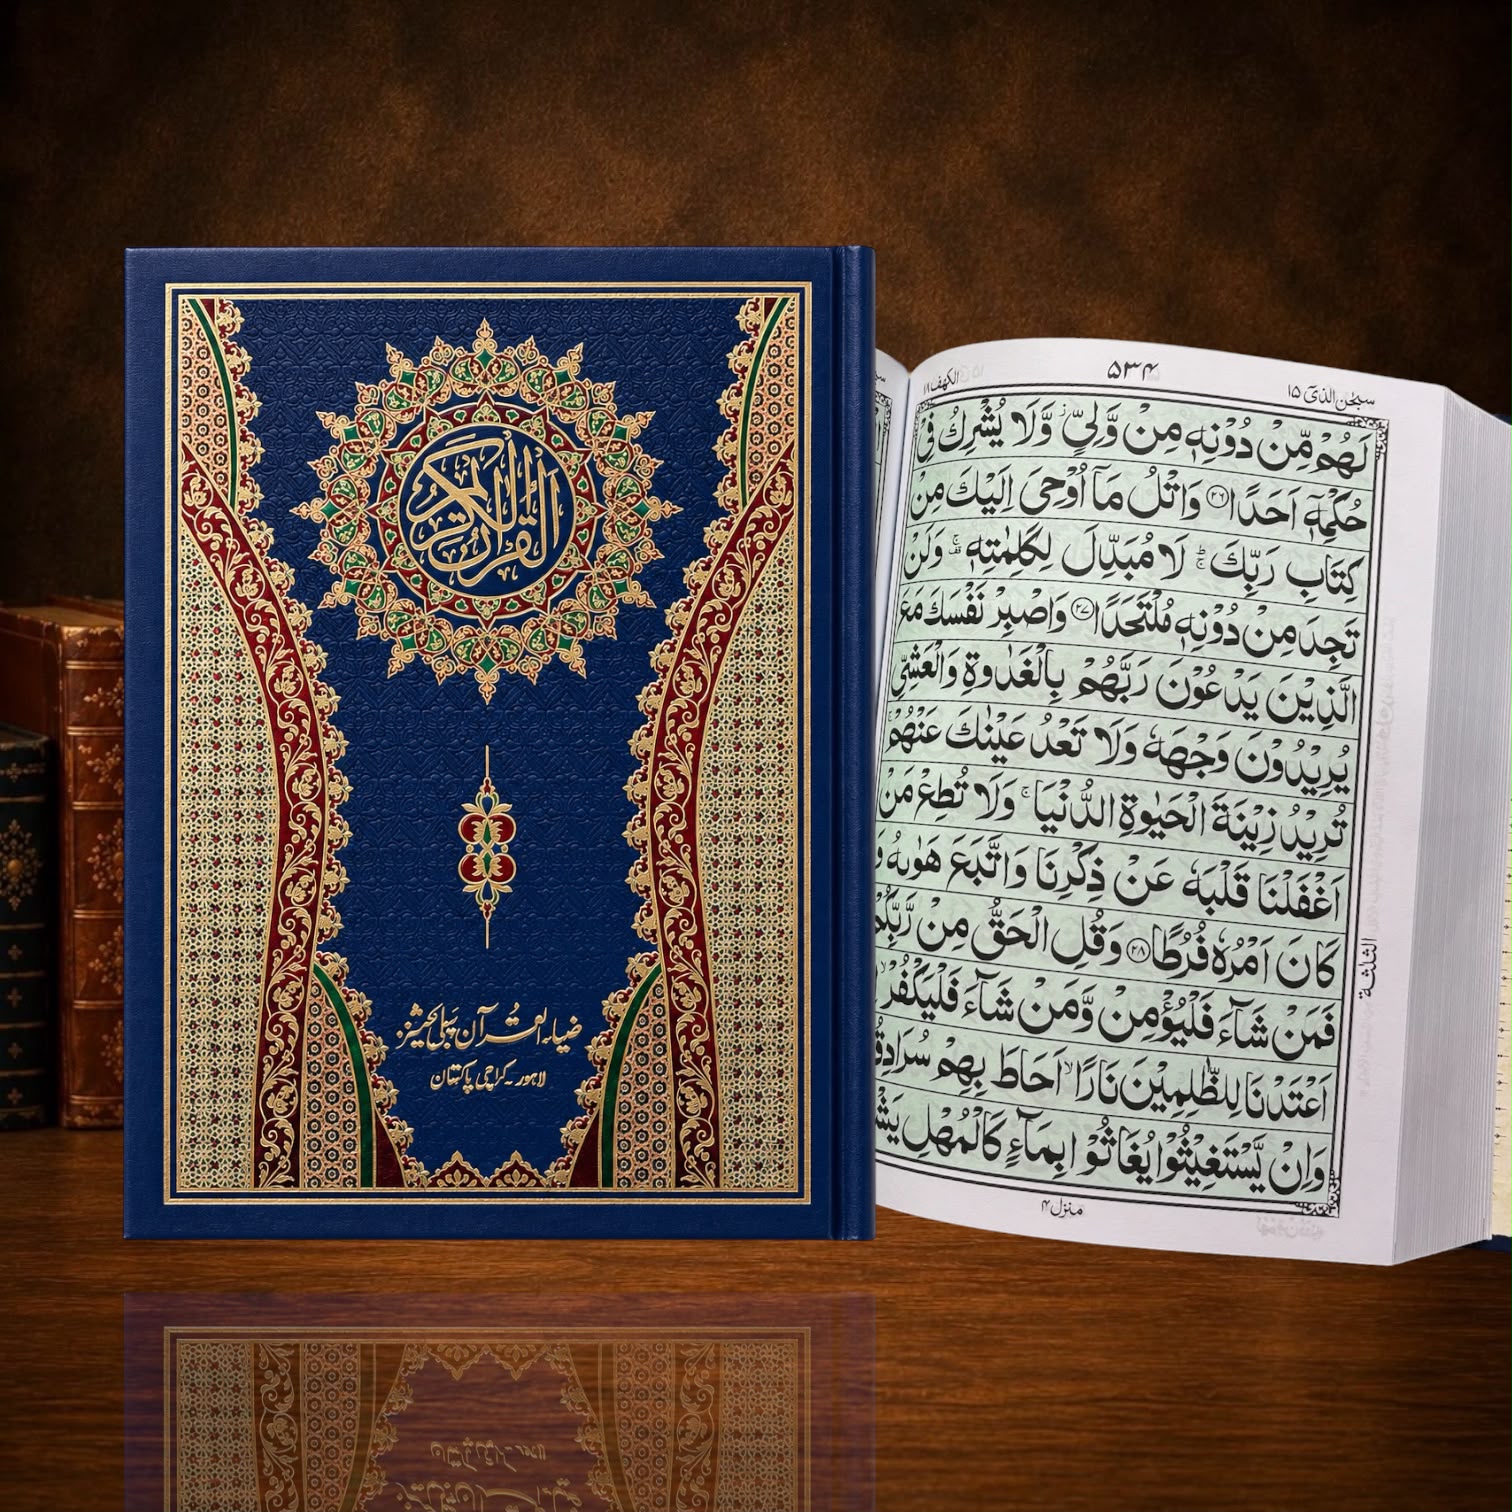 القرآن الكريم
ضیاء القرآن پبلی کیشنز
لاہور ۔ کراچی پاکستان
سبحٰن الذیٓ ۱۵
۵۳۴
الكهف ۱۸
لَهُمْ مِّنْ دُوْنِهٖ مِنْ وَّلِیٍّ٘ وَّلَا یُشْرِكُ فِیْ
حُكْمِهٖۤ اَحَدًا ﴿۲۶﴾ وَاتْلُ مَاۤ اُوْحِیَ اِلَیْكَ مِنْ
كِتَابِ رَبِّكَ ؕ لَا مُبَدِّلَ لِكَلِمٰتِهٖ ۚ۫ وَلَنْ
تَجِدَ مِنْ دُوْنِهٖ مُلْتَحَدًا ﴿۲۷﴾ وَاصْبِرْ نَفْسَكَ مَعَ
الَّذِیْنَ یَدْعُوْنَ رَبَّهُمْ بِالْغَدٰوةِ وَالْعَشِیِّ
یُرِیْدُوْنَ وَجْهَهٗ وَلَا تَعْدُ عَیْنٰكَ عَنْهُمْ ۚ
تُرِیْدُ زِیْنَةَ الْحَیٰوةِ الدُّنْیَا ۚ وَلَا تُطِعْ مَنْ
اَغْفَلْنَا قَلْبَهٗ عَنْ ذِكْرِنَا وَاتَّبَعَ هَوٰىهُ وَ
كَانَ اَمْرُهٗ فُرُطًا ﴿۲۸﴾ وَقُلِ الْحَقُّ مِنْ رَّبِّكُمْ
فَمَنْ شَآءَ فَلْیُؤْمِنْ وَّمَنْ شَآءَ فَلْیَكْفُرْ ۙ
اَعْتَدْنَا لِلظّٰلِمِیْنَ نَارًا ۙ اَحَاطَ بِهِمْ سُرَادِقُ
وَاِنْ یَّسْتَغِیْثُوْا یُغَاثُوْا بِمَآءٍ كَالْمُهْلِ
الثلثة
منزل ۴